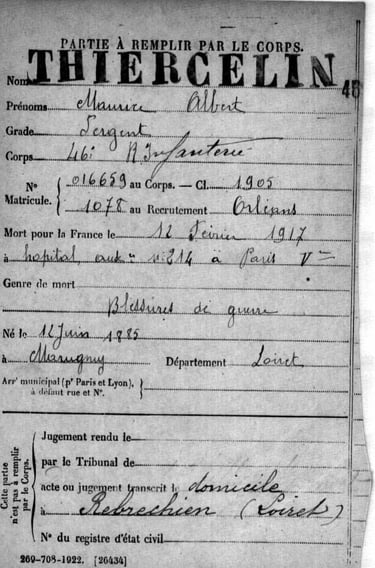 PARTIE À REMPLIR PAR LE CORPS.
Nom THIERCELIN
Prénoms Maurice Albert
Grade Sergent
Corps 46e R Infanterie
N° 016659 au Corps. — Cl. 1905
Matricule. 1078 au Recrutement Orléans
Mort pour la France le 12 Février 1917
à hopital aux re n° 214 à Paris V
Genre de mort
Blessures de guerre
Né le 12 Juin 1885
à Marigny Département Loiret
Arr' municipal (p' Paris et Lyon),
à défaut rue et N°.
Cette partie
n'est pas à remplir
par le Corps.
Jugement rendu le
par le Tribunal de
acte ou jugement transcrit le domicile
à Rebrechien (Loiret)
N° du registre d'état civil
269-708-1922. [26434]